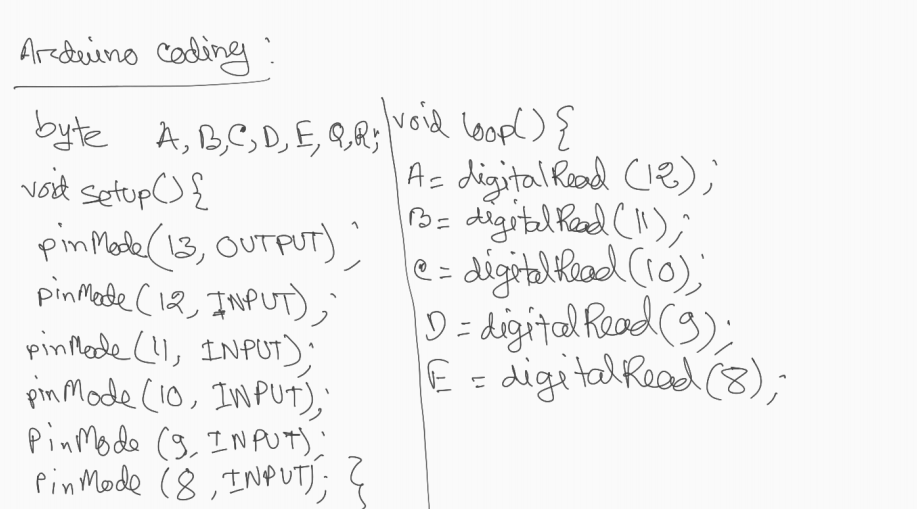 Arduino coding:
byte A, B, C, D, E, Q, R;
void setup() {
pinMode(13, OUTPUT);
pinMode(12, INPUT);
pinMode(11, INPUT);
pinMode(10, INPUT);
PinMode (9, INPUT);
pinMode (8, INPUT); }
void loop() {
A = digitalRead (12);
B = digitalRead (11);
C = digitalRead (10);
D = digitalRead (9);
E = digitalRead (8);